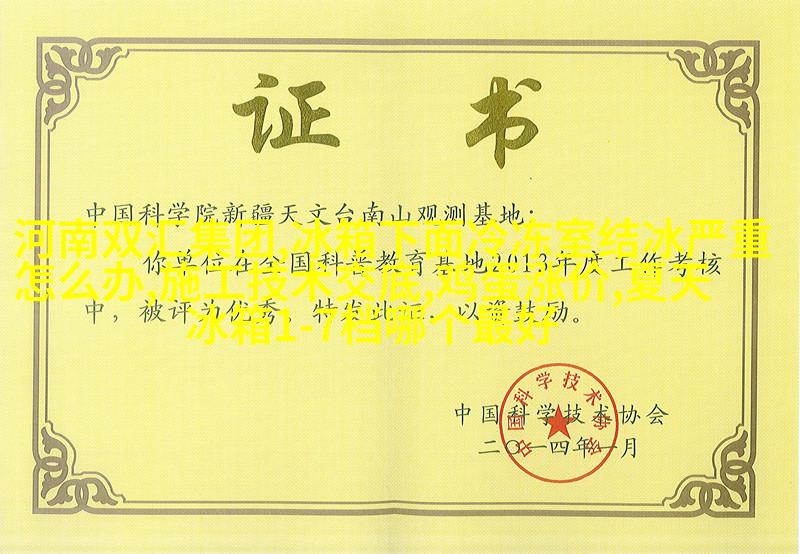 证书
中国科学院新疆天文台南山观测基地：
河南双汇集团,冰箱下面冷冻室结冰严重
你单位在全国科普教育基地2013年度工作考核
怎么办,施工技术交底,鸡蛋涨价,夏天
中，被评为优秀，特发此证，以资鼓励。
冰箱1-7档哪个最好
中国科学技术协会
二〇一四年一月
中国科学技术协会